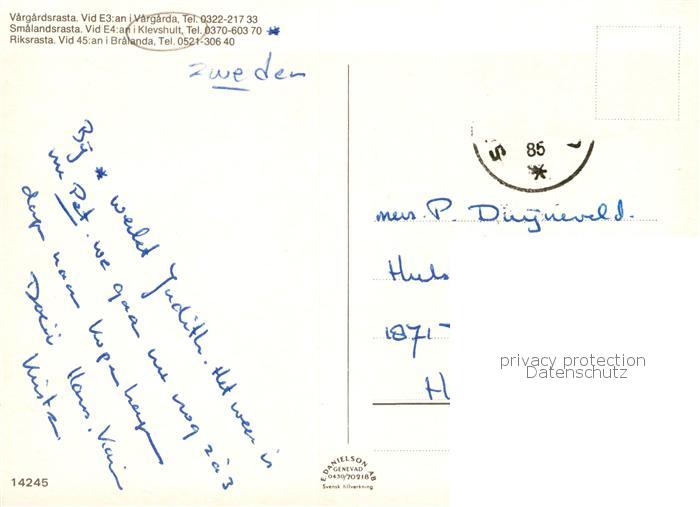 Vårgårdsrasta. Vid E3:an i Vårgårda, Tel. 0322-217 33
Smålandsrasta. Vid E4:an i Klevshult, Tel. 0370-603 70 *
Riksrasta. Vid 45:an i Brålanda, Tel. 0521-306 40
zweden
Bij * werkt Judith. Het weer is
Pet. we gaan nu nog zo'n 3
naar
Hans,
85
mevr. P. Duijneveld.
Huls
1871-
H
privacy protection
Datenschutz
14245
E. DANIELSON AB
GENEVAD
0430/70218
Svensk tillverkning